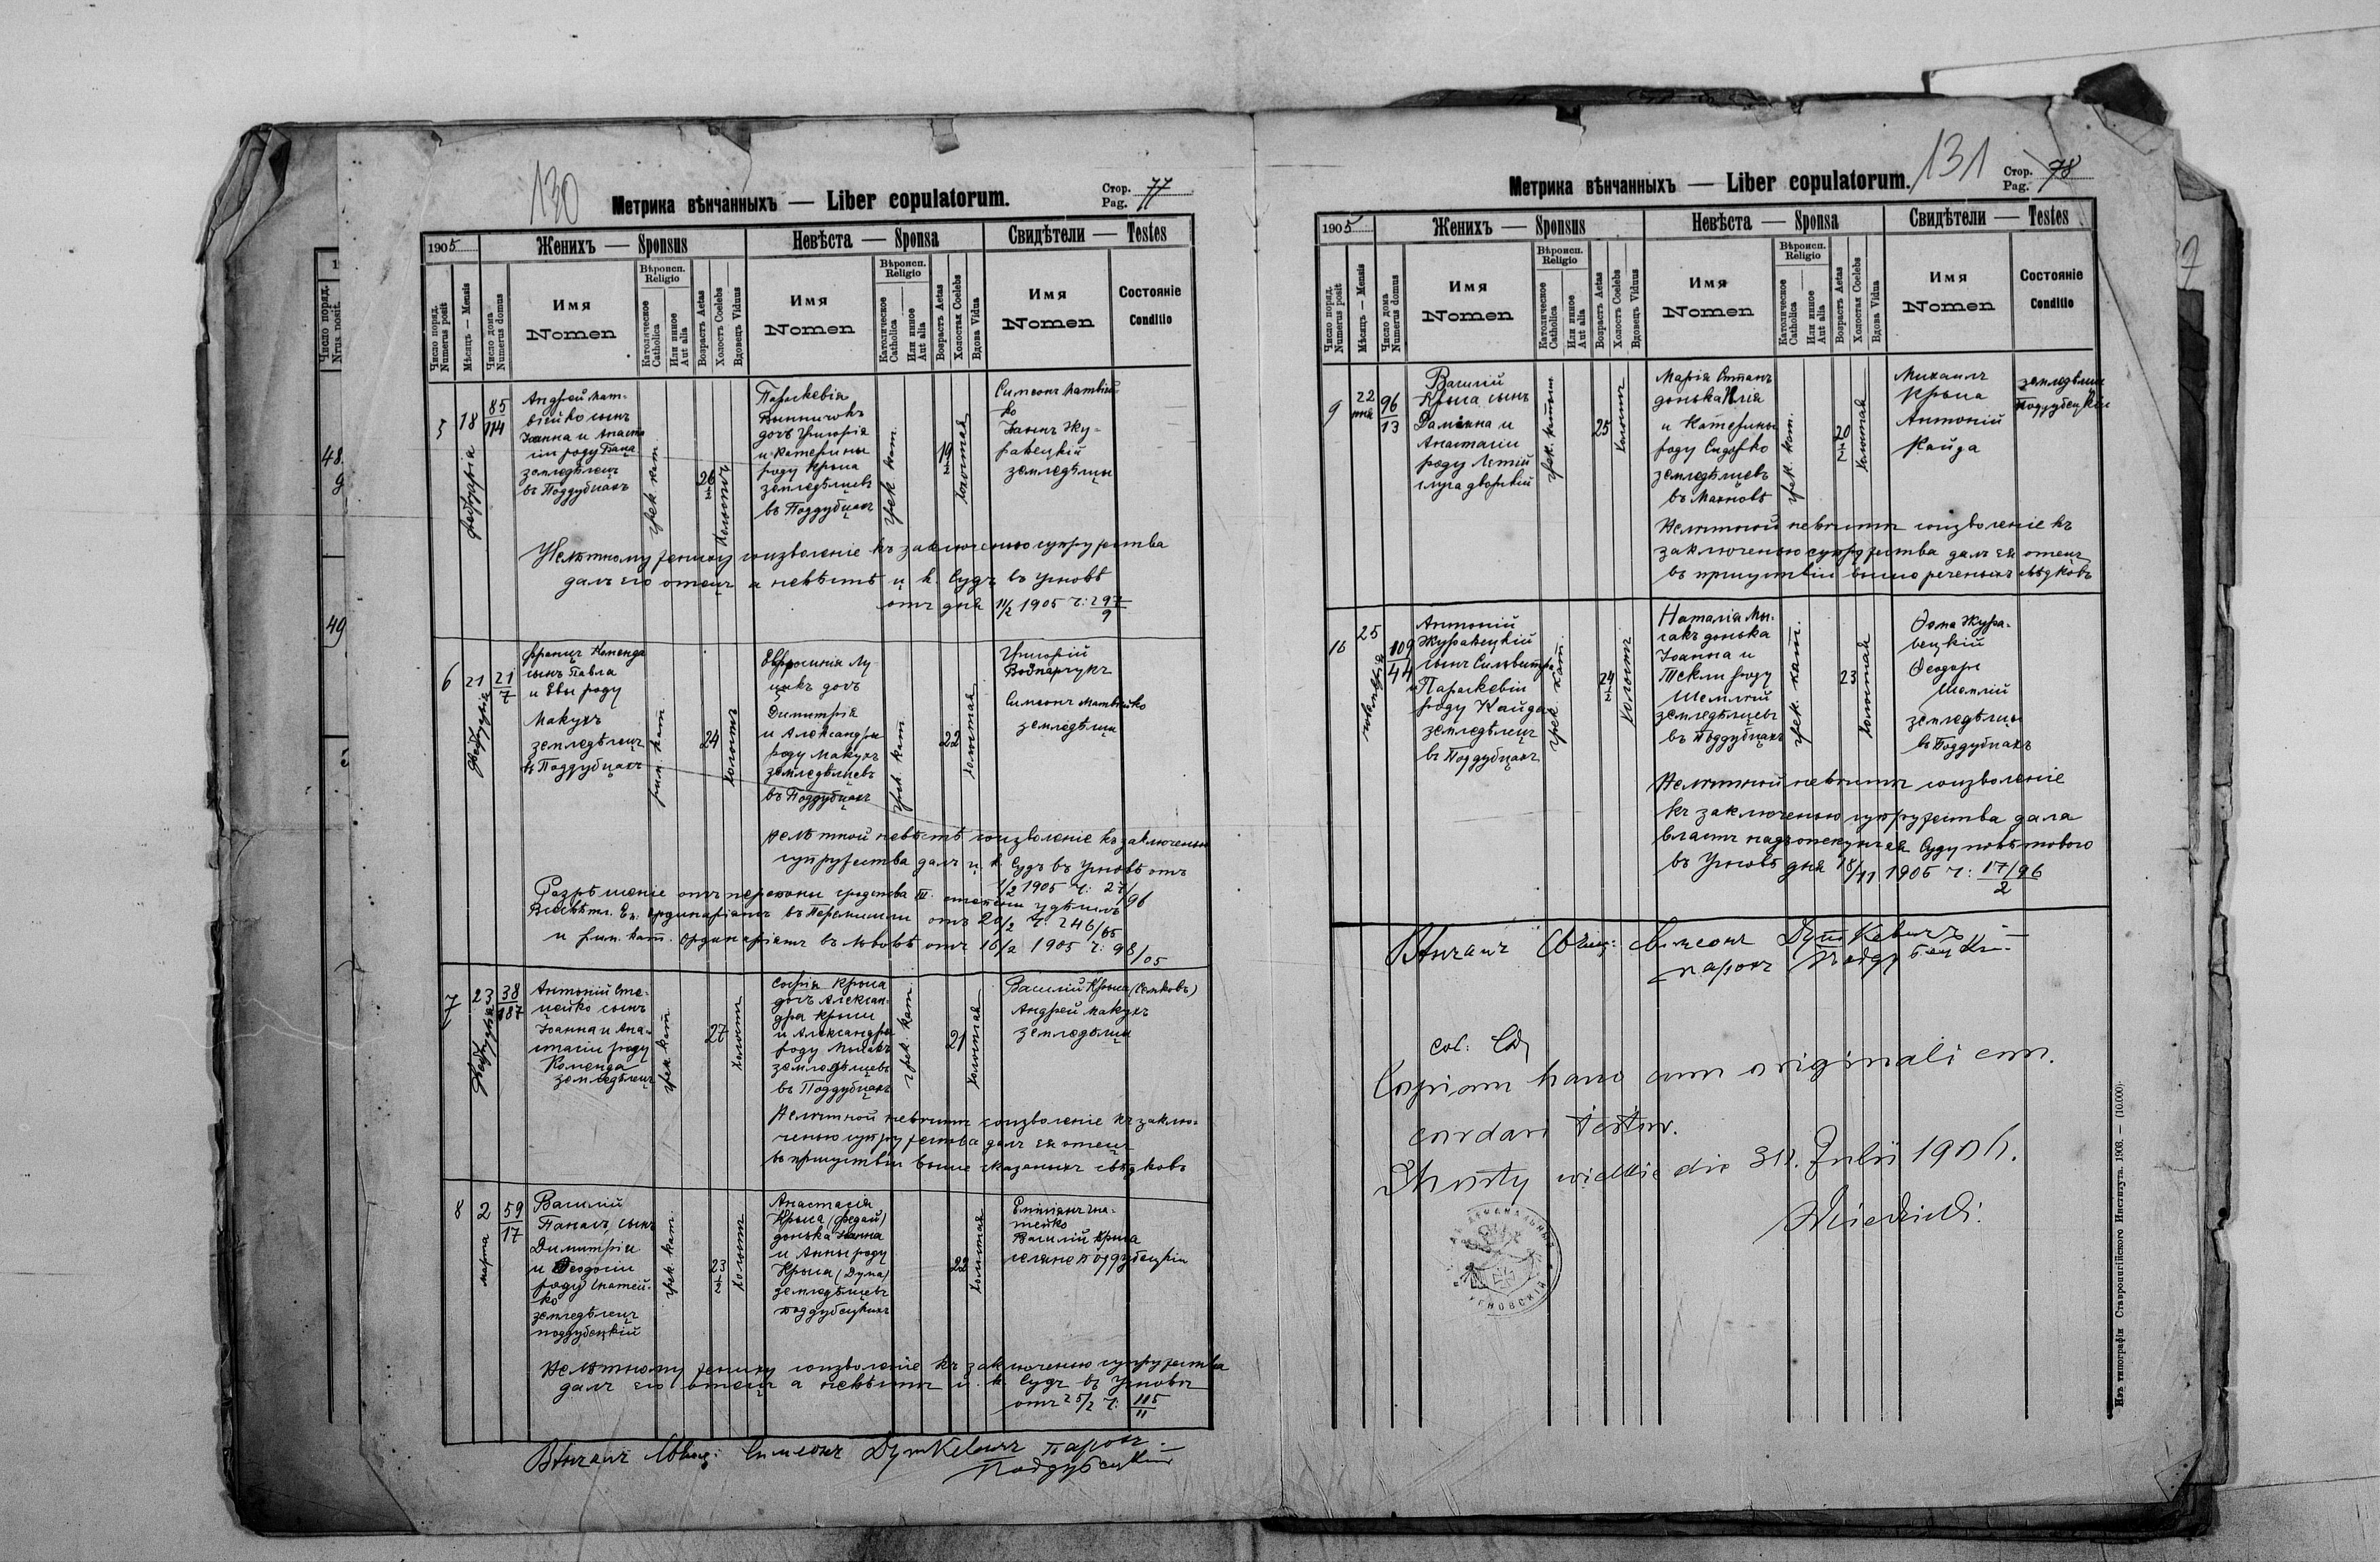 130
Метрика вѣнчанныхъ — Liber copulatorum.
Стор. 77
Pag.
1905
Женихъ — Sponsus
Невѣста — Sponsa
Свидѣтели — Testes
Число поряд. Numerus posit
Мѣсяцъ — Mensis
Число дома Numerus domus
Имя Nomen
Вѣроисп. Religio
Католическое Catholica
Или инное Aut alia
Возрастъ Aetas
Холостъ Coelebs
Вдовецъ Viduus
Имя Nomen
Вѣроисп. Religio
Католическое Catholica
Или инное Aut alia
Возрастъ Aetas
Холостая Coelebs
Вдова Vidua
Имя Nomen
Состояніе Conditio
5
18 Февраля
85/114
Андрей Мат-
вѣйко сынъ
Іоанна и Анаста
сіи роду Баца
земледѣлецъ
въ Поддубцахъ
грек. кат.
26
холостъ
Параскевія
дочь Григорія
и Катерины
роду Крыса
земледѣлцевъ
въ Поддубцахъ
грек. кат.
19
холостая
Симеонъ Матвій
ко
Іоаннъ Жу-
равецкій
земледѣлцы
Нелѣтному жениху соизволеніе къ заключенью супружества
далъ его отецъ а невѣстѣ ц. к. Судъ въ Угновѣ
отъ дня 11/2 1905 ч: 297/9
6
21 Февраля
21/7
Францъ Коменда
сынъ Павла
и Евы роду
Макухъ
земледѣлецъ
въ Поддубцахъ
рим. кат
24
холостъ
Евфросинія Лу
цикъ дочь
Димитрія
и Александры
роду Макухъ
земледѣлцевъ
въ Поддубцахъ
грек. кат
22
холостая
Григорій
Боднарчукъ
Симеонъ Матвѣйко
земледѣлцы
Нелѣтной невѣстѣ соизволеніе къ заключенью
супружества далъ ц. к. Судъ въ Угновѣ отъ
1/2 1905 ч: 27/96
Разрѣшеніе отъ перепоны сродства III. степени удѣлилъ
Ординаріатъ въ Перемышли отъ 20/2 ч: 246/65
и рим. кат. Ординаріатъ въ Львовѣ отъ 16/2 1905 ч: 98/05
7
23 Февраля
38/187
Антоній Сте-
цейко сынъ
Іоанна и Ана-
стасіи роду
Коменда
земледѣлецъ
грек. кат
27
холостъ
Софія Крыса
дочь Алексан-
дра Крысы
и Александры
роду
земледѣлцевъ
въ Поддубцахъ
грек. кат.
21
холостая
Василій Крыса (Сенковъ)
Андрей Макухъ
земледѣлцы
Нелѣтной невѣстѣ соизволеніе къ заклю-
ченью супружества далъ ея отецъ
въ присутствіи выше сказанныхъ свѣдковъ
8
2 марта
59/17
Василій
Панасъ, сынъ
Димитрія
и Феодосіи
роду Гнатей-
ко
земледѣлецъ
поддубецкій
грек. кат.
23
холостъ
Анастасія
Крыса (Федай)
донька Іоанна
и Анны роду
Крыса (Дупа)
земледѣлцевъ
поддубецкихъ
22
холостая
Гна-
тейко
Василій Крыса
селяне поддубецкіи
Нелѣтному жениху соизволеніе къ заключенью супружества
далъ его отецъ а невѣстѣ ц. к. Судъ въ Угновѣ
отъ 25/2 ч: 115/11
Вѣнчалъ Симеонъ Дуткевичъ парохъ
Поддубецкій
131
Метрика вѣнчанныхъ — Liber copulatorum.
Стор. 78
Pag.
1905
Женихъ — Sponsus
Невѣста — Sponsa
Свидѣтели — Testes
Число поряд. Numerus posit
Мѣсяцъ — Mensis
Число дома Numerus domus
Имя Nomen
Вѣроисп. Religio
Католическое Catholica
Или инное Aut alia
Возрастъ Aetas
Холостъ Coelebs
Вдовецъ Viduus
Имя Nomen
Вѣроисп. Religio
Католическое Catholica
Или инное Aut alia
Возрастъ Aetas
Холостая Coelebs
Вдова Vidua
Имя Nomen
Состояніе Conditio
9
22 мая
96/13
Василій
Крыса сынъ
Даміана и
Анастасіи
роду
слуга дворскій
грек. катол
25
холостъ
Марія Степанъ
донька Илія
и Катерины
роду Сидорко
земледѣлцевъ
въ Махновѣ
грек. кат.
20
холостая
Михаилъ
Крыса
Антоній
Кайда
земледѣлци
поддубецкіи
Нелѣтной невѣстѣ соизволеніе къ
заключенью супружества далъ ея отецъ
въ присутствіи выше реченыхъ свѣдковъ
10
25 новембрія
109/44
Антоній
Журавецкій
сынъ Сильвестра
и Параскевіи
роду Кайда
земледѣлецъ
въ Поддубцахъ
грек. кат.
24
холостъ
Наталія Мы-
сакъ донька
Іоанна и
Текли роду
Шемлій
земледѣлцевъ
въ Поддубцахъ
грек. кат.
23
холостая
Ѳома Жура-
вецкій
Ѳеодоръ
Шемлій
земледѣлцы
въ Поддубцахъ
Нелѣтной невѣстѣ соизволеніе
къ заключенью супружества дала
власть надъопекунчая Суду повѣтового
въ Угновѣ дня 18/11 1905 ч: 17/96/2
Вѣнчалъ Симеонъ Дуткевичъ
парохъ Поддубецкій
Copiam hanc cum originali con-
cordare testor.
die 31. Julii 1906.
Изъ типографіи Ставропигійского Института. 1903. — (10.000).
Число поряд.
Nrus posit.
48.
9
49